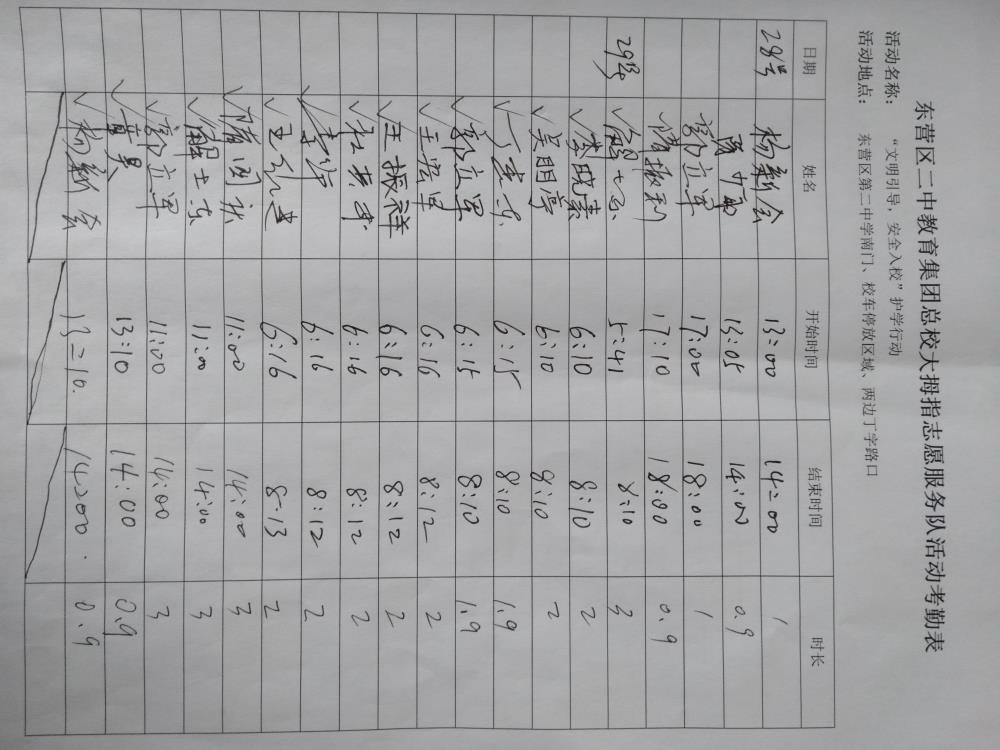 东营区二中教育集团总校大拇指志愿服务队活动考勤表
活动名称： “文明引导，安全入校”护学行动
活动地点： 东营区第二中学南门、校车停放区域、两边丁字路口
日期 姓名 开始时间 结束时间 时长
28号 杨新会 13:00 14:00 1
13:05 14:00 0.9
郭立军 17:00 18:00 1
隋振利 17:10 18:00 0.9
29号 5:41 8:10 3
李晓素 6:10 8:10 2
吴朋亭 6:10 8:10 2
6:15 8:10 1.9
郭立军 6:15 8:10 1.9
6:16 8:12 2
王振祥 6:16 8:12 2
6:16 8:12 2
6:16 8:12 2
6:16 8:13 2
11:00 14:00 3
解士 11:00 14:00 3
郭立军 11:00 14:00 3
13:10 14:00 0.9
杨新会 13:10. 14:00. 0.9